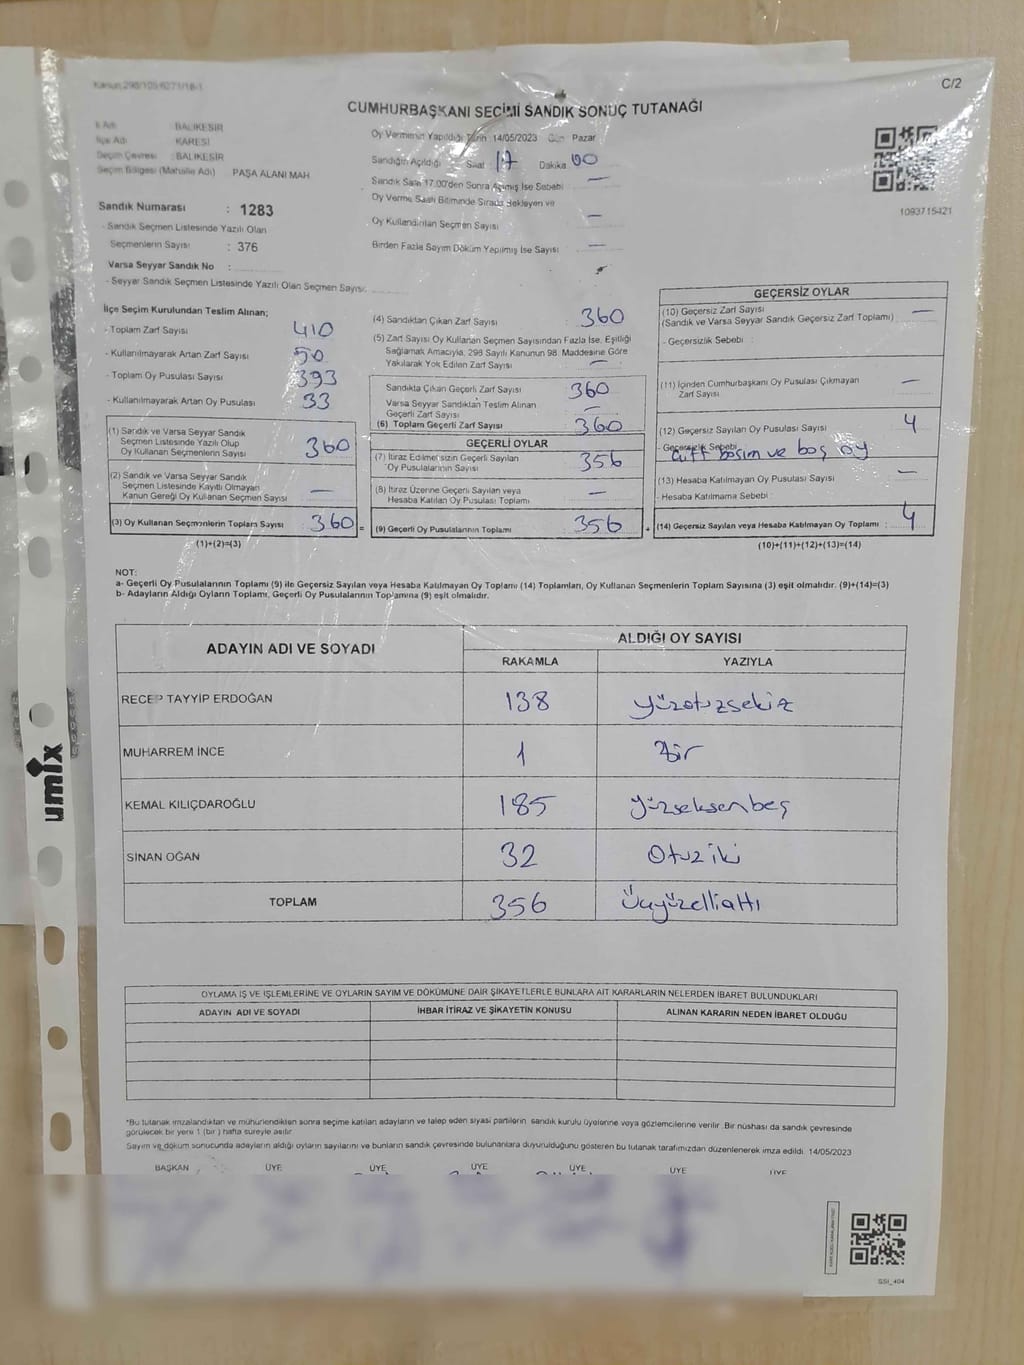 Kanun:298/105/6271/18-1
C/2
CUMHURBAŞKANI SEÇİMİ SANDIK SONUÇ TUTANAĞI
İl Adı : BALIKESİR
İlçe Adı : KARESİ
Seçim Çevresi : BALIKESİR
Seçim Bölgesi (Mahalle Adı) PAŞA ALANI MAH
Sandık Numarası : 1283
- Sandık Seçmen Listesinde Yazılı Olan
Seçmenlerin Sayısı : 376
Varsa Seyyar Sandık No :
- Seyyar Sandık Seçmen Listesinde Yazılı Olan Seçmen Sayısı:
Oy Vermenin Yapıldığı Tarih 14/05/2023 Gün Pazar
Sandığın Açıldığı Saat : 17 Dakika 00
Sandık Saat 17.00'den Sonra Açılmış İse Sebebi —
Oy Verme Saati Bitiminde Sırada Bekleyen ve
Oy Kullandırılan Seçmen Sayısı —
Birden Fazla Sayım Döküm Yapılmış İse Sayısı —
1093715421
İlçe Seçim Kurulundan Teslim Alınan;
- Toplam Zarf Sayısı 410
- Kullanılmayarak Artan Zarf Sayısı 50
- Toplam Oy Pusulası Sayısı 393
- Kullanılmayarak Artan Oy Pusulası 33
(1) Sandık ve Varsa Seyyar Sandık
Seçmen Listesinde Yazılı Olup
Oy Kullanan Seçmenlerin Sayısı 360
(2) Sandık ve Varsa Seyyar Sandık
Seçmen Listesinde Kayıtlı Olmayan
Kanun Gereği Oy Kullanan Seçmen Sayısı —
(3) Oy Kullanan Seçmenlerin Toplam Sayısı 360 =
(1)+(2)=(3)
(4) Sandıktan Çıkan Zarf Sayısı : 360
(5) Zarf Sayısı Oy Kullanan Seçmen Sayısından Fazla İse, Eşitliği
Sağlamak Amacıyla, 298 Sayılı Kanunun 98. Maddesine Göre
Yakılarak Yok Edilen Zarf Sayısı —
Sandıkta Çıkan Geçerli Zarf Sayısı 360
Varsa Seyyar Sandıktan Teslim Alınan
Geçerli Zarf Sayısı —
(6) Toplam Geçerli Zarf Sayısı 360
GEÇERLİ OYLAR
(7) İtiraz Edilmeksizin Geçerli Sayılan
Oy Pusulalarının Sayısı 356
(8) İtiraz Üzerine Geçerli Sayılan veya
Hesaba Katılan Oy Pusulası Toplamı —
(9) Geçerli Oy Pusulalarının Toplamı 356 +
GEÇERSİZ OYLAR
(10) Geçersiz Zarf Sayısı
(Sandık ve Varsa Seyyar Sandık Geçersiz Zarf Toplamı) —
- Geçersizlik Sebebi :
(11) İçinden Cumhurbaşkanı Oy Pusulası Çıkmayan
Zarf Sayısı —
(12) Geçersiz Sayılan Oy Pusulası Sayısı : 4
- Geçersizlik Sebebi çift basım ve boş oy
(13) Hesaba Katılmayan Oy Pusulası Sayısı —
- Hesaba Katılmama Sebebi
(14) Geçersiz Sayılan veya Hesaba Katılmayan Oy Toplamı : 4
(10)+(11)+(12)+(13)=(14)
NOT:
a- Geçerli Oy Pusulalarının Toplamı (9) ile Geçersiz Sayılan veya Hesaba Katılmayan Oy Toplamı (14) Toplamları, Oy Kullanan Seçmenlerin Toplam Sayısına (3) eşit olmalıdır. (9)+(14)=(3)
b- Adayların Aldığı Oyların Toplamı, Geçerli Oy Pusulalarının Toplamına (9) eşit olmalıdır.
ADAYIN ADI VE SOYADI
ALDIĞI OY SAYISI
RAKAMLA YAZIYLA
RECEP TAYYİP ERDOĞAN 138 yüzotuzsekiz
MUHARREM İNCE 1 Bir
KEMAL KILIÇDAROĞLU 185 yüzseksenbeş
SİNAN OĞAN 32 Otuziki
TOPLAM 356 Üçyüzelliatı
OYLAMA İŞ VE İŞLEMLERİNE VE OYLARIN SAYIM VE DÖKÜMÜNE DAİR ŞİKAYETLERLE BUNLARA AİT KARARLARIN NELERDEN İBARET BULUNDUKLARI
ADAYIN ADI VE SOYADI İHBAR İTİRAZ VE ŞİKAYETİN KONUSU ALINAN KARARIN NEDEN İBARET OLDUĞU
*Bu tutanak imzalandıktan ve mühürlendikten sonra seçime katılan adayların ve talep eden siyasi partilerin sandık kurulu üyelerine veya gözlemcilerine verilir. Bir nüshası da sandık çevresinde
görülecek bir yere 1 (bir) hafta süreyle asılır.
Sayım ve döküm sonucunda adayların aldığı oyların sayılarını ve bunların sandık çevresinde bulunanlara duyurulduğunu gösteren bu tutanak tarafımızdan düzenlenerek imza edildi. 14/05/2023
BAŞKAN ÜYE ÜYE ÜYE ÜYE ÜYE ÜYE
SSI_404
umix